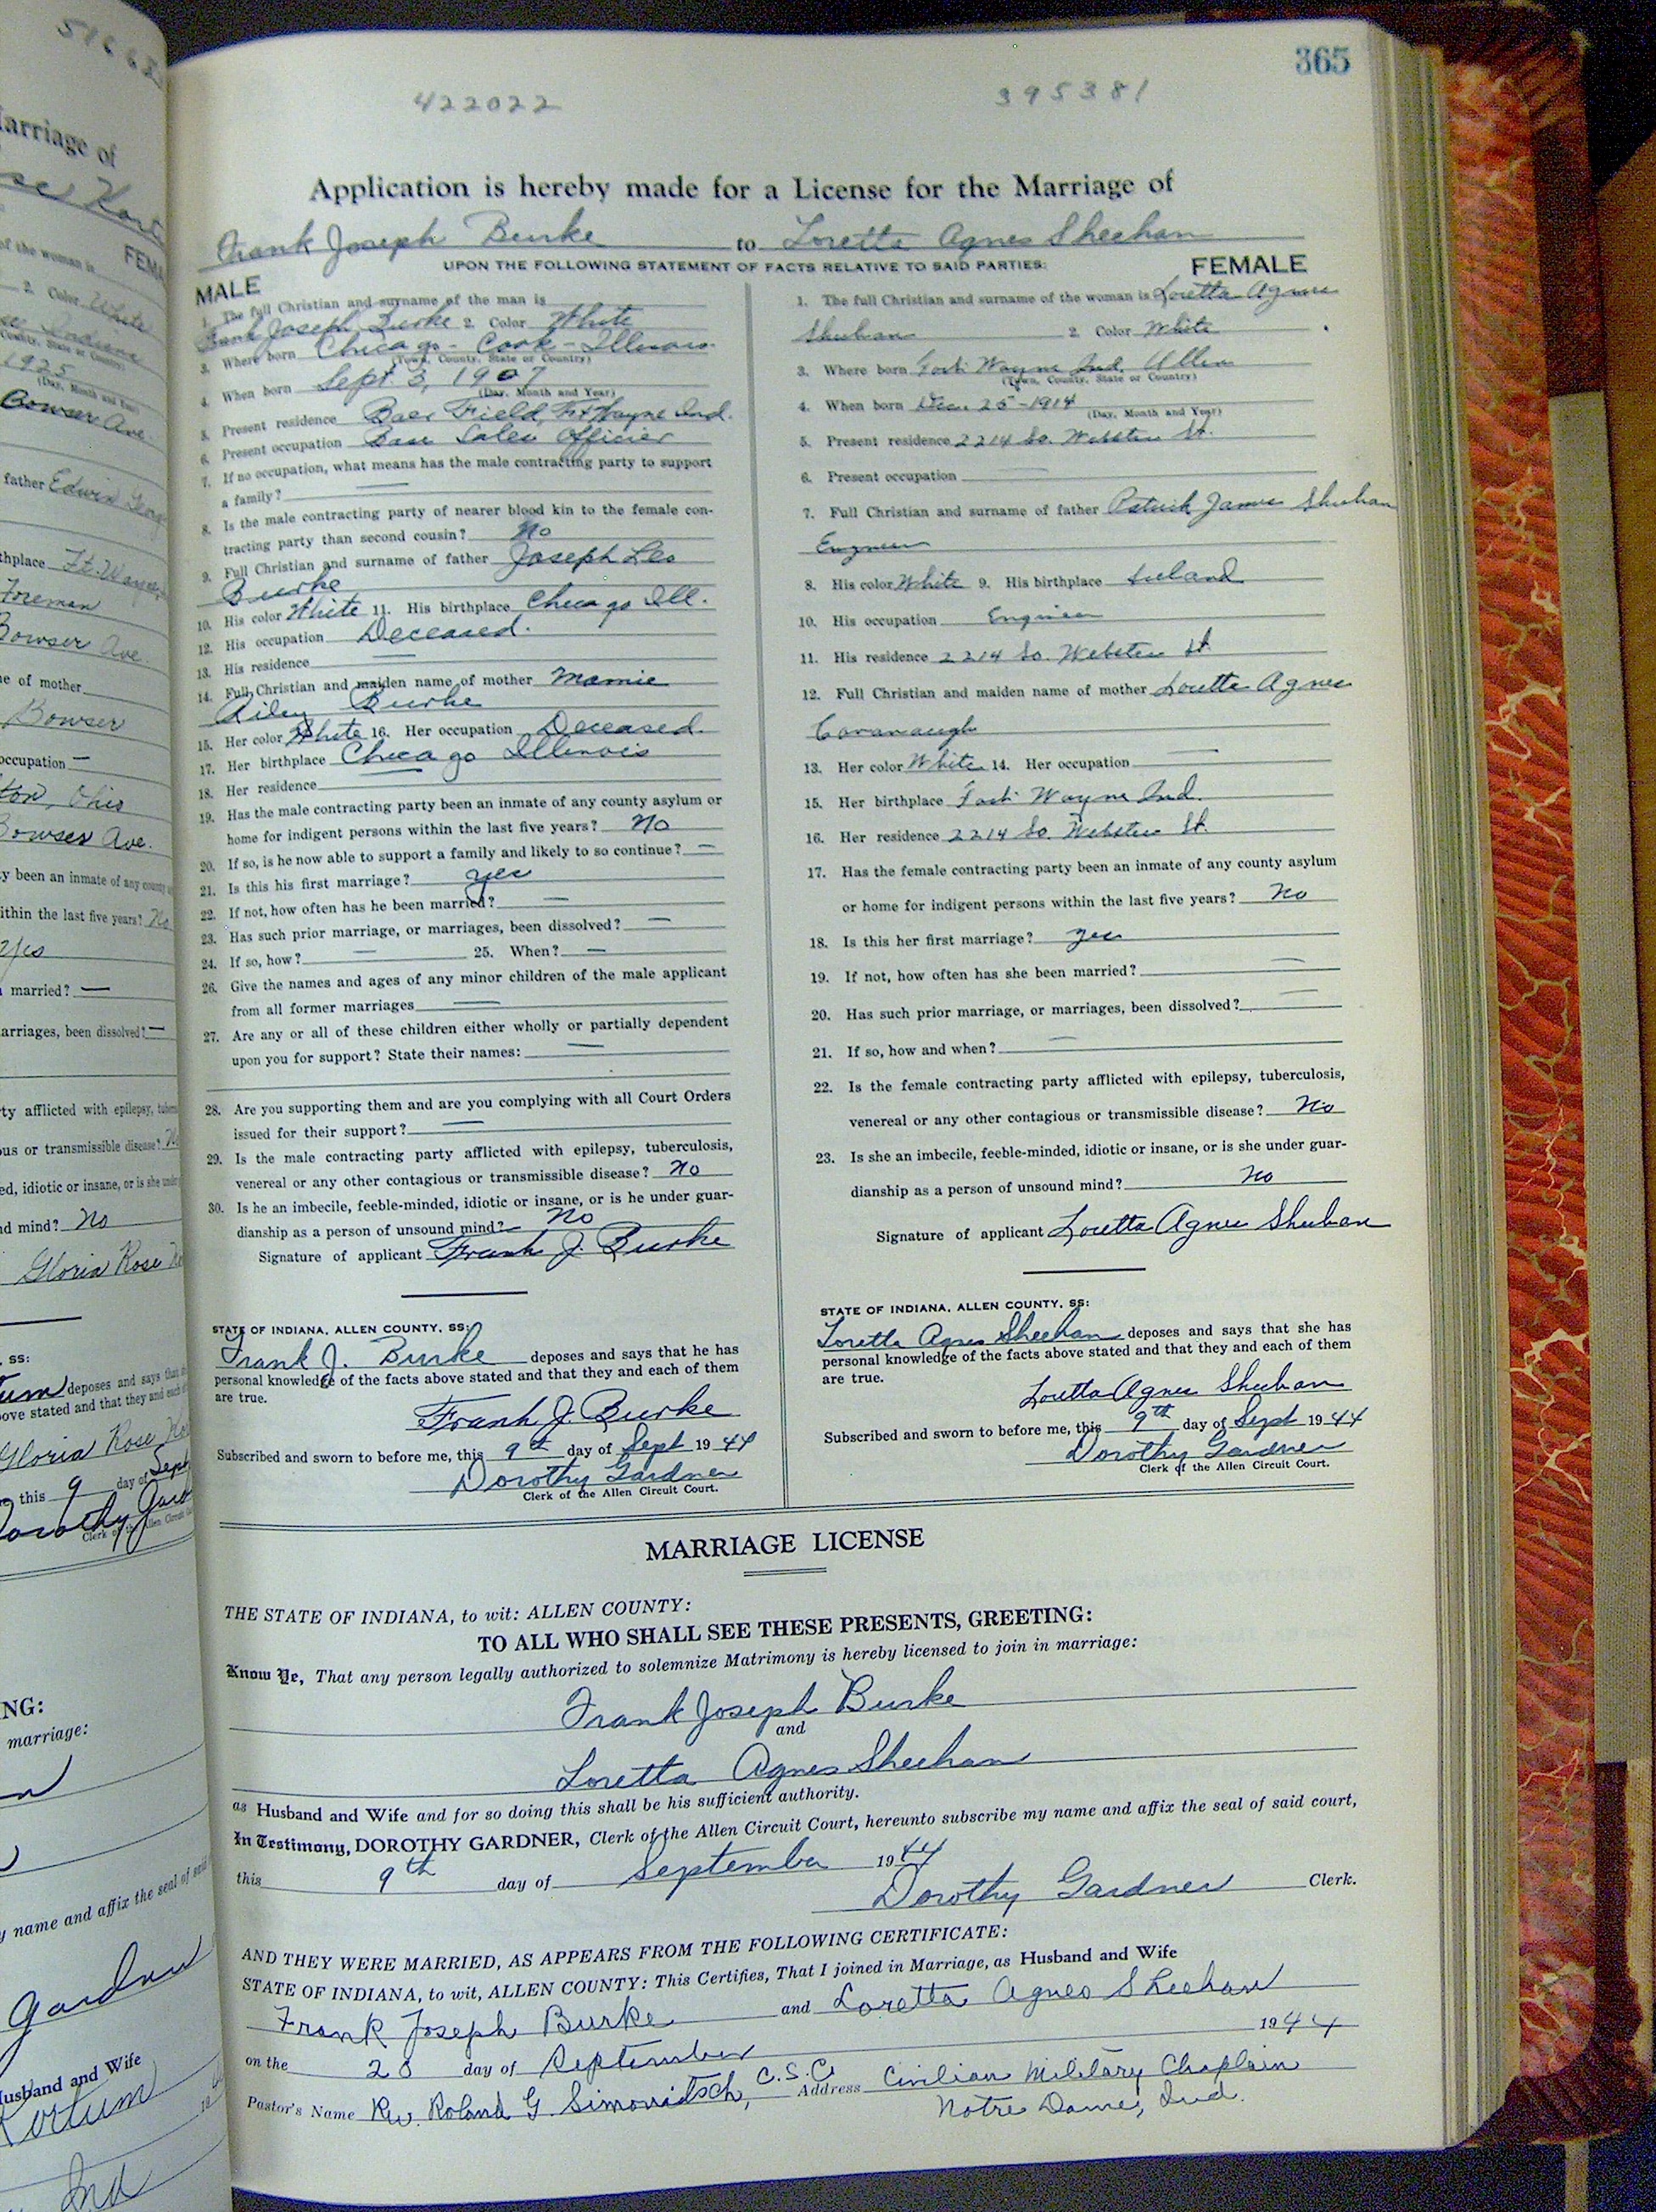 365
422022
395381
Application is hereby made for a License for the Marriage of
Frank Joseph Burke to Loretta Agnes Sheehan
UPON THE FOLLOWING STATEMENT OF FACTS RELATIVE TO SAID PARTIES:
MALE
1. The full Christian and surname of the man is
Frank Joseph Burke 2. Color White
3. Where born Chicago - Cook - Illinois
(Town, County, State or Country)
4. When born Sept. 3, 1907
(Day, Month and Year)
5. Present residence Baer Field, Ft Wayne Ind.
6. Present occupation Base Sales Officier
7. If no occupation, what means has the male contracting party to support
a family? —
8. Is the male contracting party of nearer blood kin to the female con-
tracting party than second cousin? No
9. Full Christian and surname of father Joseph Leo
Burke
10. His color White 11. His birthplace Chicago Ill.
12. His occupation Deceased.
13. His residence —
14. Full Christian and maiden name of mother Mamie
Riley Burke
15. Her color White 16. Her occupation Deceased.
17. Her birthplace Chicago Illinois
18. Her residence —
19. Has the male contracting party been an inmate of any county asylum or
home for indigent persons within the last five years? No
20. If so, is he now able to support a family and likely to so continue? —
21. Is this his first marriage? yes
22. If not, how often has he been married? —
23. Has such prior marriage, or marriages, been dissolved? —
24. If so, how? — 25. When? —
26. Give the names and ages of any minor children of the male applicant
from all former marriages —
27. Are any or all of these children either wholly or partially dependent
upon you for support? State their names: —
28. Are you supporting them and are you complying with all Court Orders
issued for their support? —
29. Is the male contracting party afflicted with epilepsy, tuberculosis,
venereal or any other contagious or transmissible disease? No
30. Is he an imbecile, feeble-minded, idiotic or insane, or is he under guar-
dianship as a person of unsound mind? No
Signature of applicant Frank J. Burke
STATE OF INDIANA, ALLEN COUNTY, SS:
Frank J. Burke deposes and says that he has
personal knowledge of the facts above stated and that they and each of them
are true.
Frank J. Burke
Subscribed and sworn to before me, this 9th day of Sept 1944
Dorothy Gardner
Clerk of the Allen Circuit Court.
FEMALE
1. The full Christian and surname of the woman is Loretta Agnes
Sheehan 2. Color White
3. Where born Fort Wayne Ind. Allen
(Town, County, State or Country)
4. When born Dec. 25 - 1914
(Day, Month and Year)
5. Present residence 2214 So. Webster St.
6. Present occupation —
7. Full Christian and surname of father Patrick James Sheehan
Engineer
8. His color White 9. His birthplace Ireland
10. His occupation Engineer
11. His residence 2214 So. Webster St
12. Full Christian and maiden name of mother Loretta Agnes
Cavanaugh
13. Her color White 14. Her occupation —
15. Her birthplace Fort Wayne Ind.
16. Her residence 2214 So. Webster St.
17. Has the female contracting party been an inmate of any county asylum
or home for indigent persons within the last five years? No
18. Is this her first marriage? yes
19. If not, how often has she been married? —
20. Has such prior marriage, or marriages, been dissolved? —
21. If so, how and when? —
22. Is the female contracting party afflicted with epilepsy, tuberculosis,
venereal or any other contagious or transmissible disease? No
23. Is she an imbecile, feeble-minded, idiotic or insane, or is she under guar-
dianship as a person of unsound mind? No
Signature of applicant Loretta Agnes Sheehan
STATE OF INDIANA, ALLEN COUNTY, SS:
Loretta Agnes Sheehan deposes and says that she has
personal knowledge of the facts above stated and that they and each of them
are true.
Loretta Agnes Sheehan
Subscribed and sworn to before me, this 9th day of Sept 1944
Dorothy Gardner
Clerk of the Allen Circuit Court.
MARRIAGE LICENSE
THE STATE OF INDIANA, to wit: ALLEN COUNTY:
TO ALL WHO SHALL SEE THESE PRESENTS, GREETING:
Know Ye, That any person legally authorized to solemnize Matrimony is hereby licensed to join in marriage:
Frank Joseph Burke
and
Loretta Agnes Sheehan
as Husband and Wife and for so doing this shall be his sufficient authority.
In Testimony, DOROTHY GARDNER, Clerk of the Allen Circuit Court, hereunto subscribe my name and affix the seal of said court,
this 9th day of September 1944
Dorothy Gardner Clerk.
AND THEY WERE MARRIED, AS APPEARS FROM THE FOLLOWING CERTIFICATE:
STATE OF INDIANA, to wit, ALLEN COUNTY: This Certifies, That I joined in Marriage, as Husband and Wife
Frank Joseph Burke and Loretta Agnes Sheehan
on the day of September 1944
Pastor's Name Rev. Roland G. Simonitsch, C.S.C. Address Civilian Military Chaplain
Notre Dame, Ind.